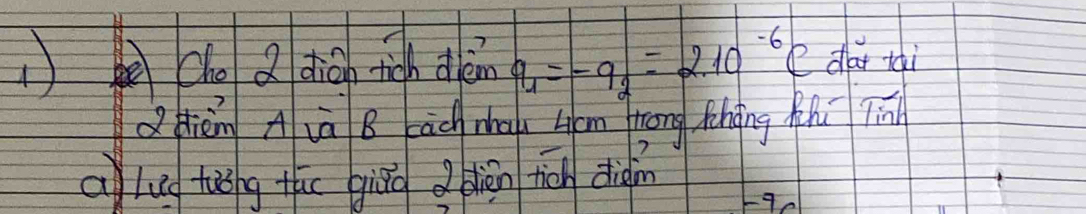 1) Cho 2 điện tích điểm q₁ = -q₂ = 2.10⁻⁶C đặt tại
2 điểm A và B cách nhau 4cm trong không khí Tính
a) Lực tương tác giữa 2 điện tích điểm
-9